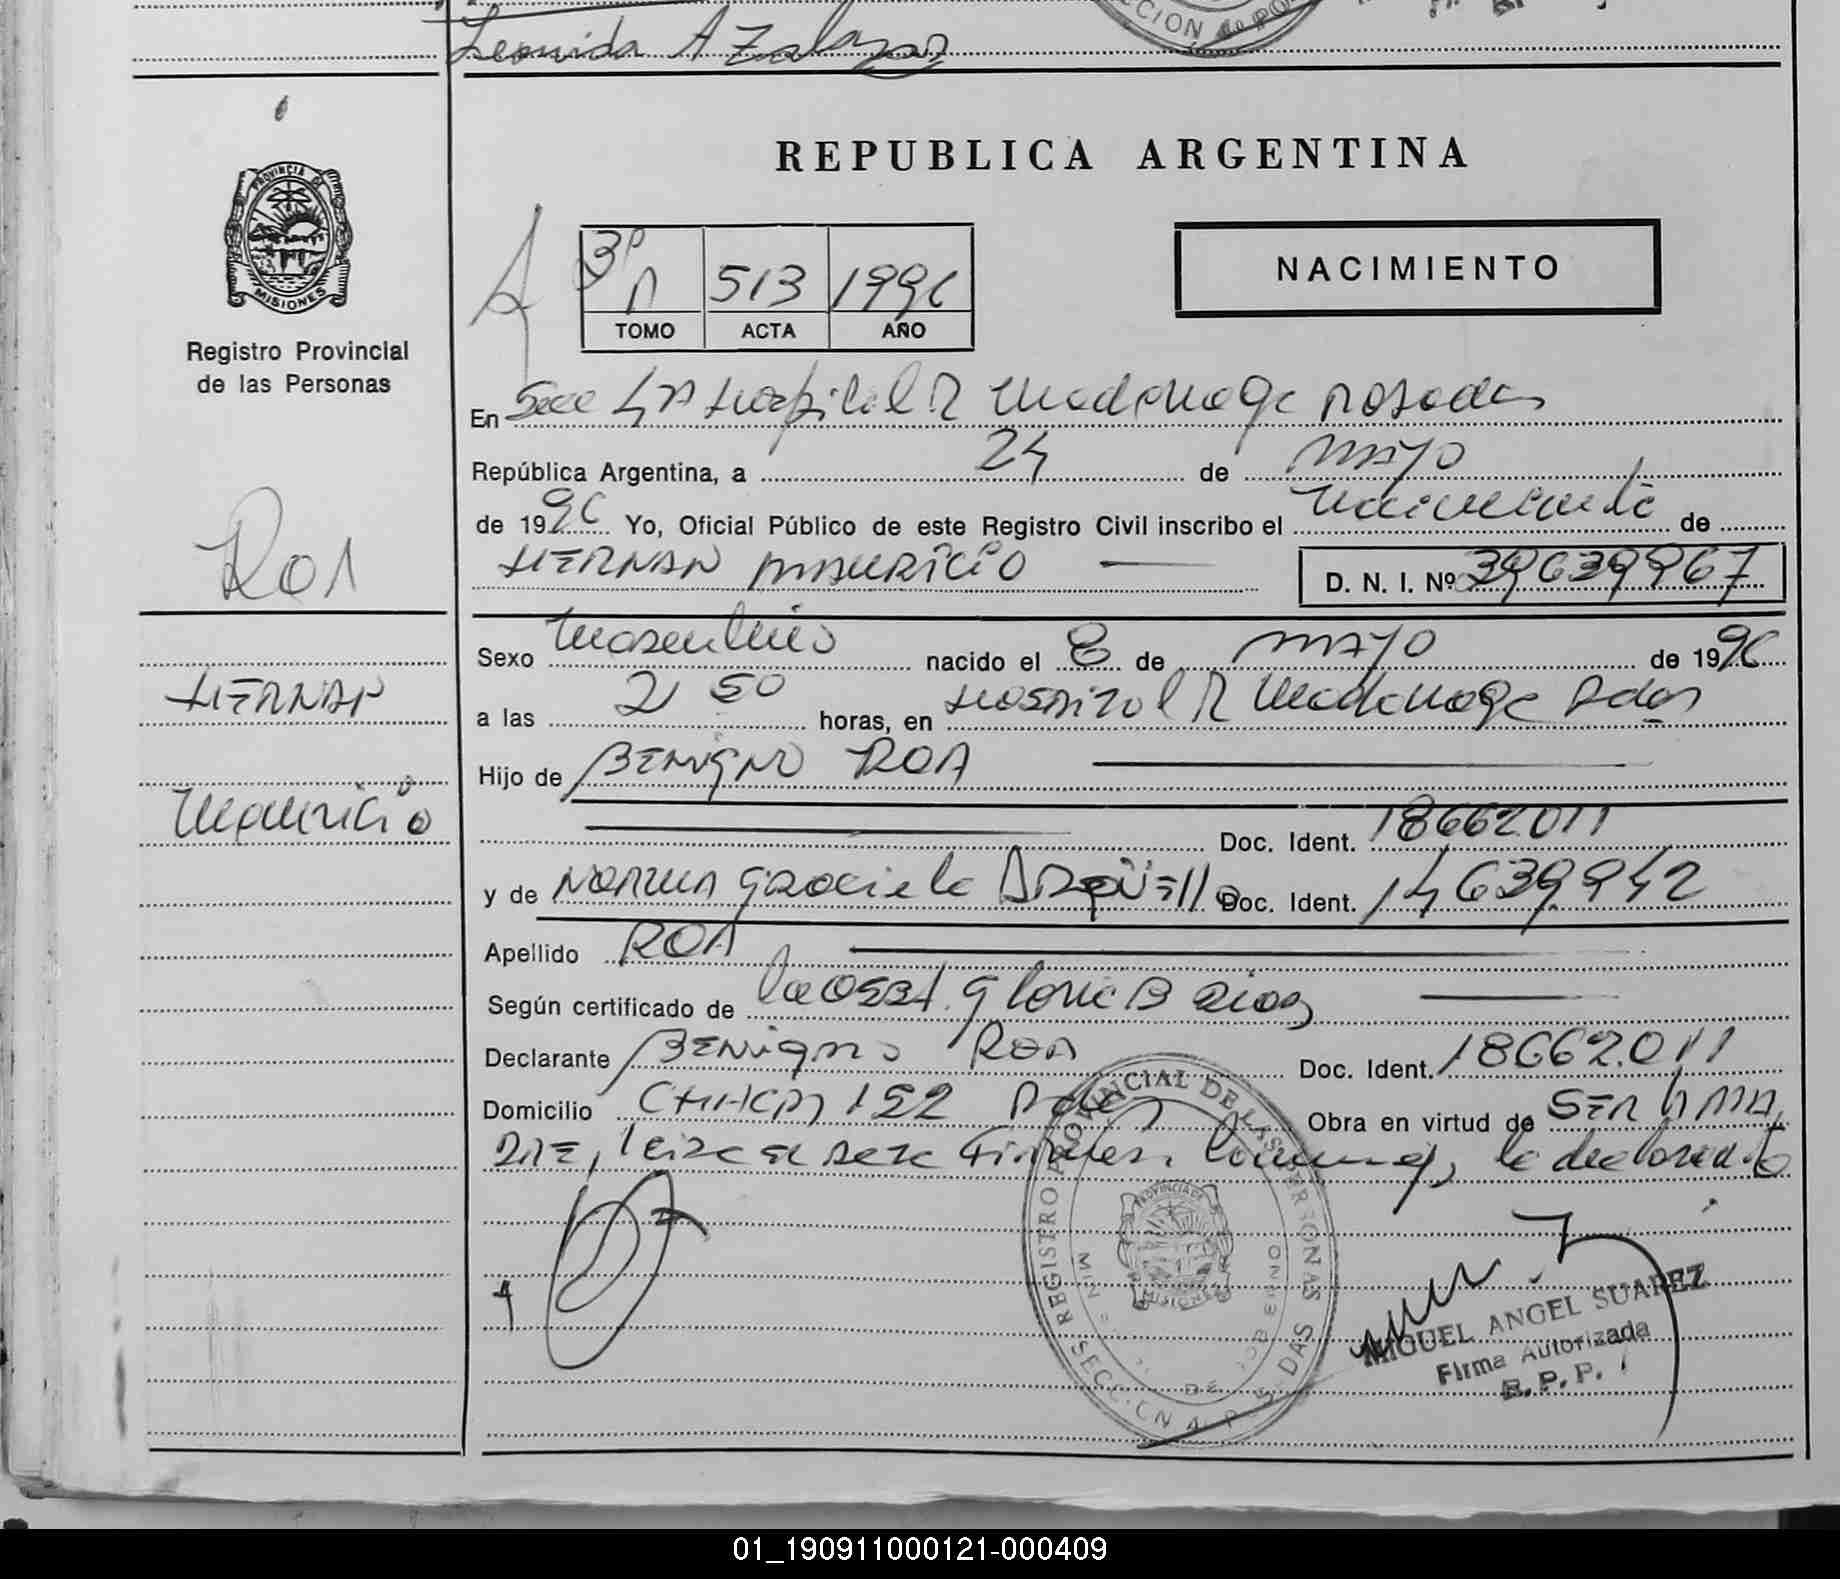 Leonida A Zalazar
PROVINCIA DE
MISIONES
Registro Provincial
de las Personas
REPUBLICA ARGENTINA
3º A 513 1996
TOMO ACTA AÑO
NACIMIENTO
En Secc 4ta Hospital R Madariaga Posadas
República Argentina, a 24 de mayo
de 1996 Yo, Oficial Público de este Registro Civil inscribo el nacimiento de
HERNAN MAURICIO D. N. I. Nº 39639967
ROA
Sexo masculino nacido el 8 de mayo de 1996
HERNAN
a las 21 50 horas, en Hospital R Madariaga Pdas
Hijo de BENigno ROA
Mauricio
Doc. Ident. 18662011
y de NORMA Graciela ARgüello Doc. Ident. 14639942
Apellido ROA
Según certificado de la Obst. Gloria B Rios
Declarante BENigno ROA Doc. Ident. 18662.011
Domicilio CHACRA 152 Pdas Obra en virtud de SER EL PA
DRE, leida el acta firman el declarante
REGISTRO PROVINCIAL DE LAS PERSONAS
PROVINCIA DE
MISIONES
MIGUEL ANGEL SUAREZ
Firma Autorizada
R. P. P.
01_190911000121-000409